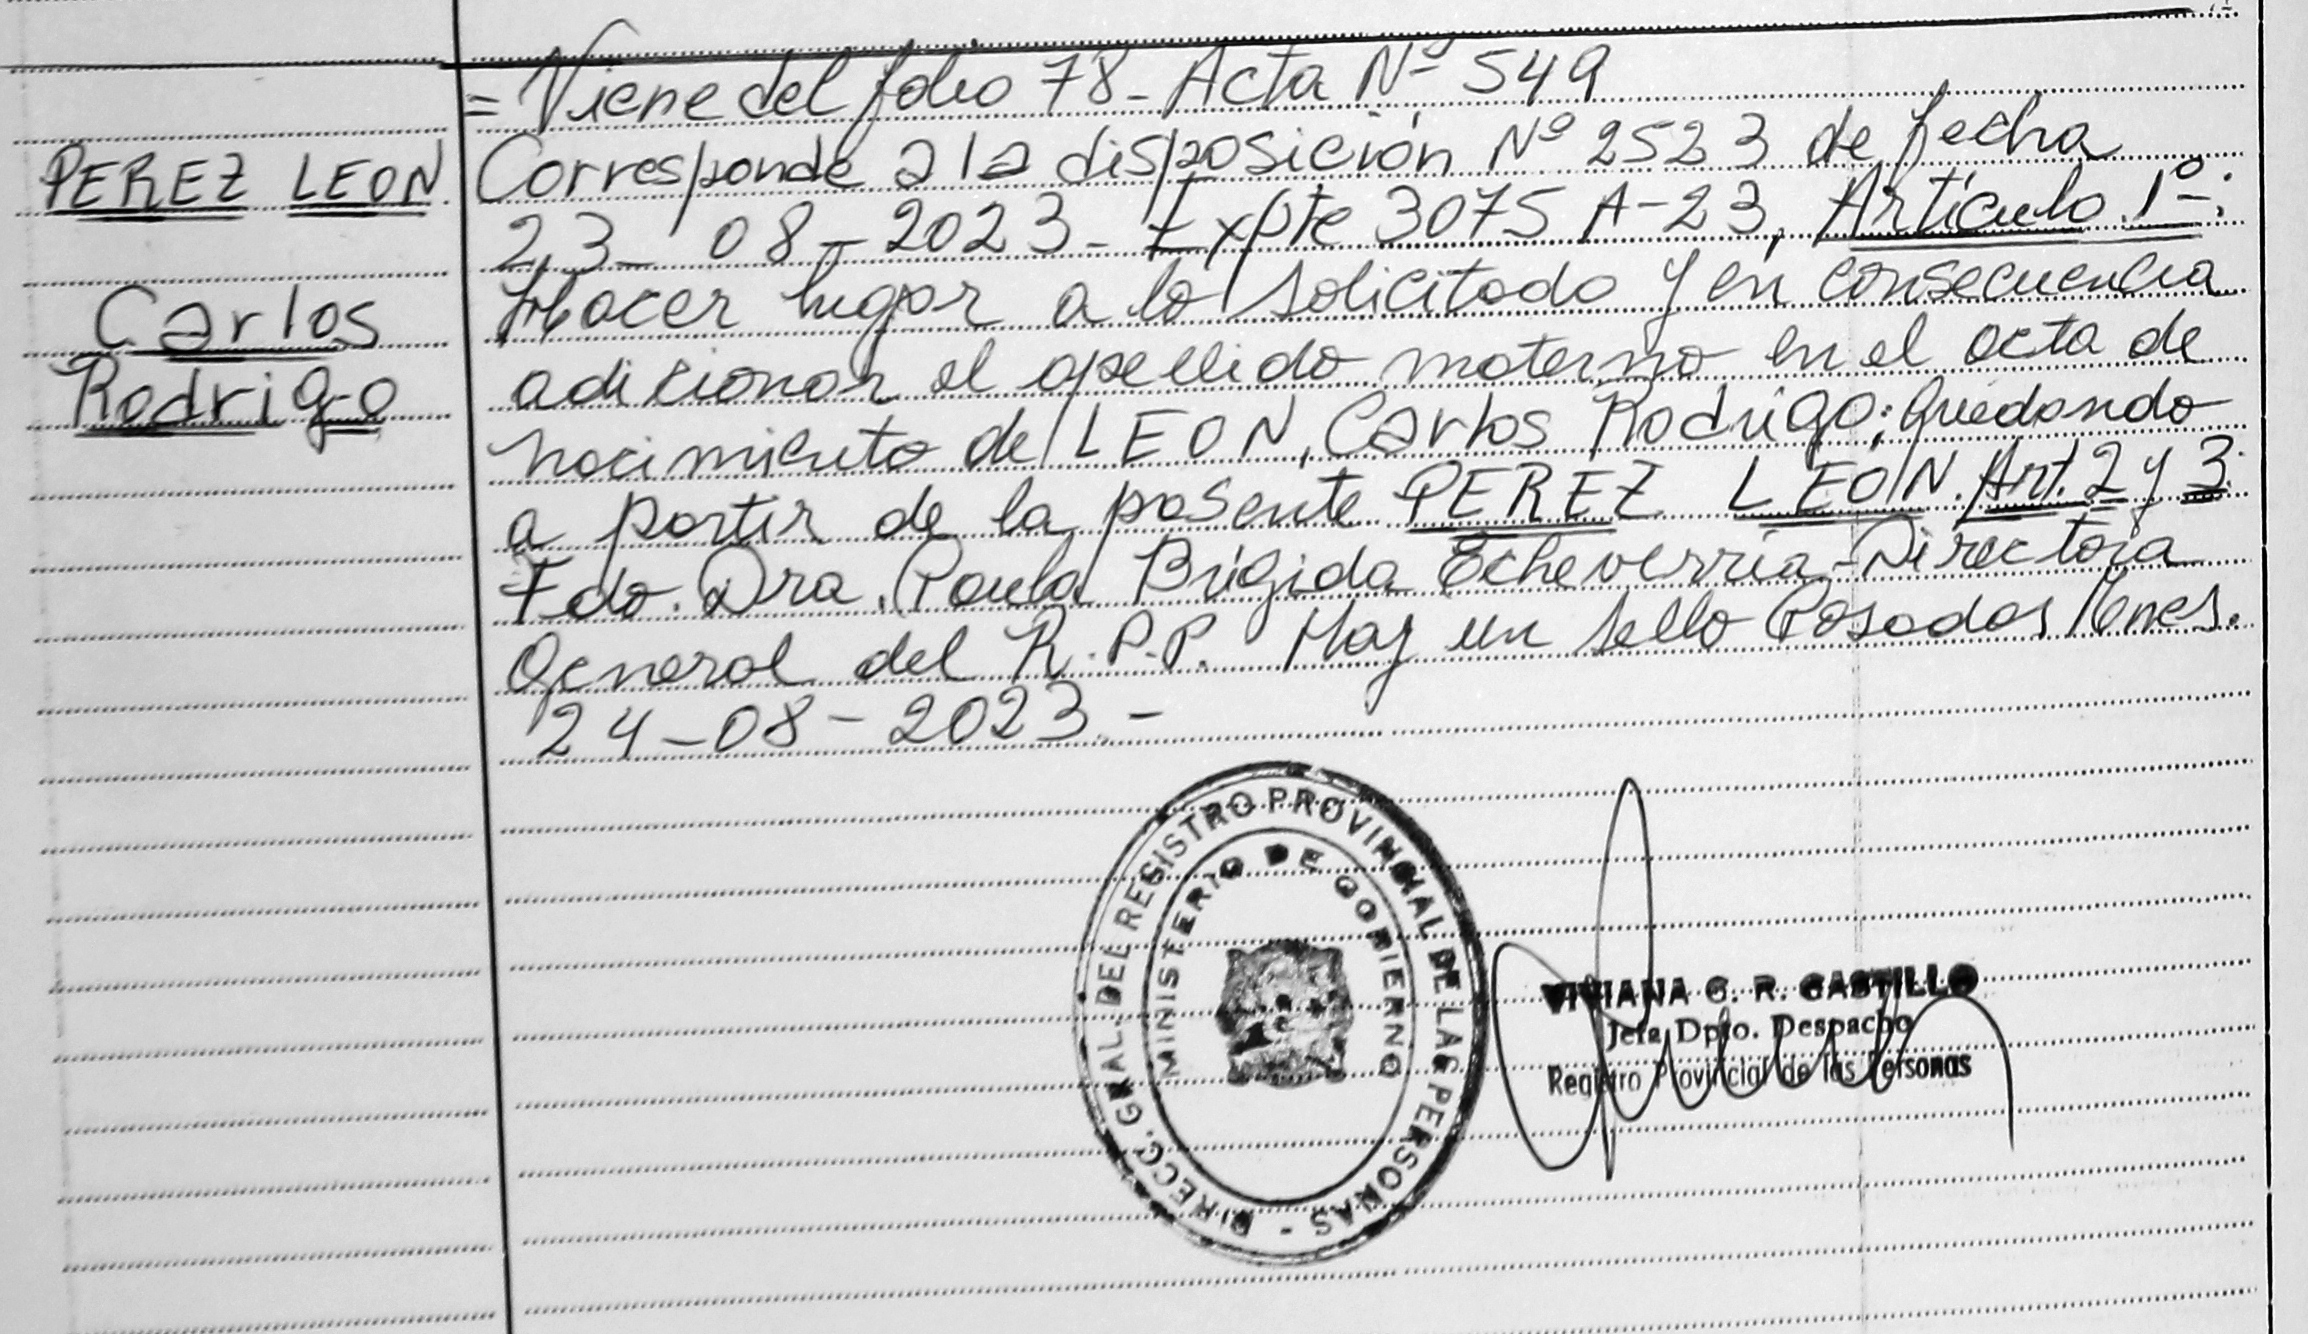 PEREZ LEON
Carlos
Rodrigo
= Viene del folio 78 - Acta Nº 549
Corresponde a la disposición Nº 2523 de fecha
23-08-2023 - Expte 3075 A-23, Artículo 1º:
Hacer lugar a lo solicitado y en consecuencia
adicionar el apellido materno en el acta de
nacimiento de LEON, Carlos Rodrigo; quedando
a partir de la posente PEREZ LEON. Art. 2 y 3
Fdo. Dra. Paula Brígida Echeverría - Directora
General del R.P.P. Hay un sello Posadas Mnes.
24-08-2023.-
DIRECC. GRAL. DEL REGISTRO PROVINCIAL DE LAS PERSONAS -
MINISTERIO DE GOBIERNO
VIVIANA C. R. CASTILLO
Jefa Dpto. Despacho
Registro Provincial de las Personas